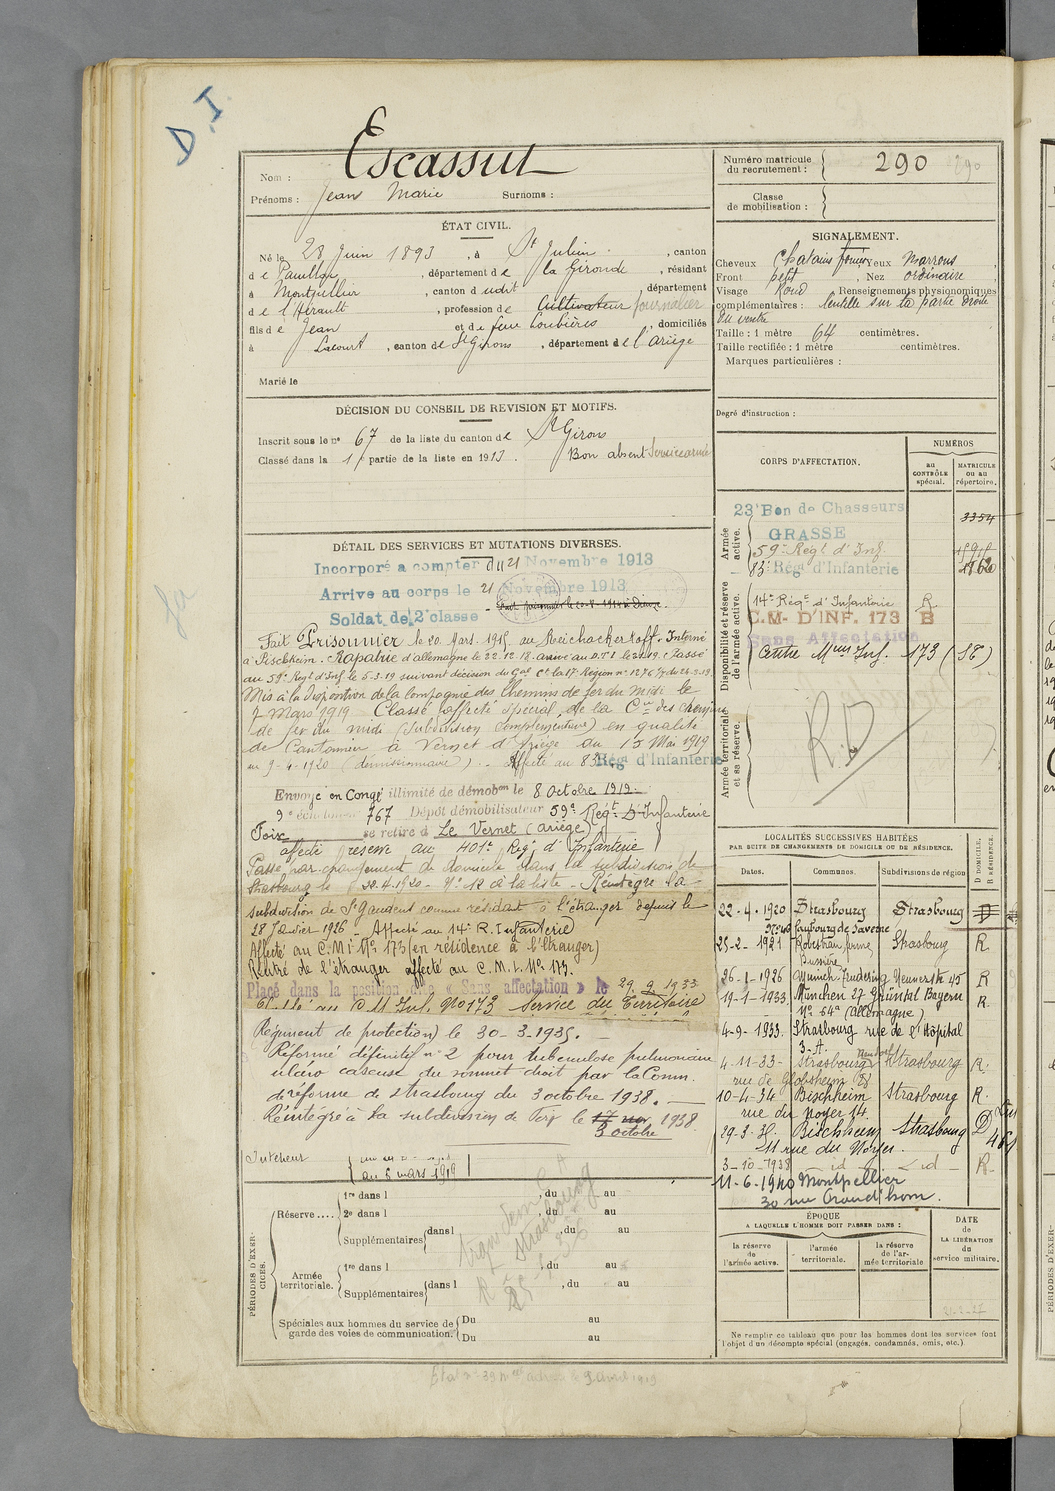 D.I
Nom : Escassut
Prénoms : Jean Marie Surnoms :
Numéro matricule du recrutement : 290 290
Classe de mobilisation :
ÉTAT CIVIL.
Né le 28 Juin 1893, à St Julien, canton
de Pauillac, département de la Gironde, résidant
à Montpellier, canton dudit, département
de l'Hérault, profession de Cultivateur journalier
fils de Jean et de feue Loubières, domiciliés
à Lacourt, canton de St Girons, département de l'Ariège
Marié le
SIGNALEMENT.
Cheveux Chatains foncés Yeux Marrons
Front petit, Nez ordinaire
Visage Rond Renseignements physionomiques
complémentaires : lentille sur la partie droite
du ventre
Taille : 1 mètre 64 centimètres.
Taille rectifiée : 1 mètre centimètres.
Marques particulières :
Degré d'instruction :
DÉCISION DU CONSEIL DE REVISION ET MOTIFS.
Inscrit sous le n° 67 de la liste du canton de St Girons
Classé dans la 1 partie de la liste en 1913. Bon absent Service armé
CORPS D'AFFECTATION.
NUMÉROS
au CONTRÔLE spécial.
MATRICULE ou au répertoire.
Armée active.
23e Bon de Chasseurs 3354
GRASSE
59e Régt d'Inf.
83e Régt d'Infanterie
Disponibilité et réserve de l'armée active.
14e Régt d'Infanterie R
C.M. D'INF. 173 B
Sans Affectation
Centre Mque Inf. 173 (St)
Armée territoriale et sa réserve.
R.D
DÉTAIL DES SERVICES ET MUTATIONS DIVERSES.
Incorporé a compter du 21 Novembre 1913
Arrive au corps le 21 Novembre 1913
Soldat de 2e classe
Fait Prisonnier le 20 Mars 1915 au Reichackerkoff. Interné
à Pischheim. Rapatrié d'allemagne le 22.12.18. arrivé au D.T.I le 2.1.19. Passé
au 59e Regt d'Inf le 6-3-19 suivant décision du Gal Ct la 17e Région
Mis à la disposition de la Compagnie des Chemins de fer du midi le
7 Mars 1919 Classé affecté spécial de la Cie des chemins
de fer du midi (subdivision complémentaire) en qualité
de Cantonnier à Vernet d'Ariège du 15 Mai 1919
au 9-4-1920 (démissionnaire). Affecté au 83e Régt d'Infanterie
Envoyé en Congé illimité de démobon le 8 Octobre 1919
9e échelon n° 767 Dépôt démobilisateur 59e Régt d'Infanterie
Foix se retire à Le Vernet (Ariège)
affecté réserve au 401e Reg. d'Infanterie
Passé par changement de domicile dans la subdivision de
Strasbourg le 22.4.1920 - N° 12 à la liste - Réintègre la
subdivision de St Gaudens comme résidant à l'étranger depuis le
28 Janvier 1926 - Affecté au 14e R. Infanterie
Affecté au C.M.I N° 173 (en résidence à l'étranger)
Rentré de l'étranger affecté au C.M.I. N° 173.
Placé dans la position dite « Sans affectation » le 29.9.1933
C.M Inf. N° 173 Service du Territoire
Régiment de protection) le 30-3-1935.
Réformé définitif n° 2 pour tuberculose pulmonaire
ulcéro caseuse du sommet droit par la Comm.
de réforme de Strasbourg du 3 octobre 1938.
Réintégré à la subdivision de Foix le 17 nov 1938
3 octobre
Intérieur
au 5 mars 1919
LOCALITÉS SUCCESSIVES HABITÉES
PAR SUITE DE CHANGEMENTS DE DOMICILE OU DE RÉSIDENCE.
Dates. Communes. Subdivisions de région D DOMICILE. R RÉSIDENCE.
22-4-1920 Strasbourg Strasbourg D
N° 40 faubourg de Saverne
25-2-1921 Robertsau, ferme Strasbourg R.
Bussière
26-1-1926 Munich Trudering Neuwerstr 45 R
19-1-1933 München 27 Grüntal Bayern R.
N° 64a (allemagne)
4-9-1933 Strasbourg rue de l'Hôpital
3-A.
4-11-33 Strasbourg Neudorf Strasbourg R.
rue de Globsheim 28
10-4-34 Bischheim Strasbourg R.
rue du Noyer 14.
29-3-35 Bischheim Strasbourg D
11 rue du Noyer.
3-10-1938 - id - - id - R.
11-6-1940 Montpellier
30 rue Grand'hom.
PÉRIODES D'EXERCICES.
Réserve.... 1re dans l , du au
2e dans l , du au
Supplémentaires dans l , du au
Armée territoriale. 1re dans l , du au
Supplémentaires dans l , du au
Spéciales aux hommes du service de garde des voies de communication. Du au
Du au
ÉPOQUE
A LAQUELLE L'HOMME DOIT PASSER DANS :
la réserve de l'armée active.
l'armée territoriale.
la réserve de l'armée territoriale
DATE de LA LIBÉRATION du service militaire.
Ne remplir ce tableau que pour les hommes dont les services font
l'objet d'un décompte spécial (engagés, condamnés, omis, etc.).